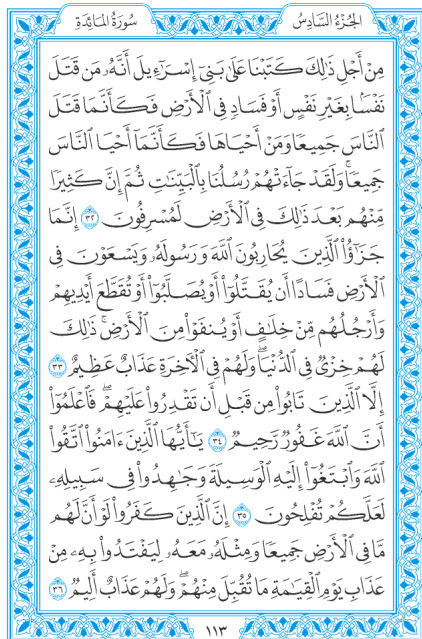 الجُزْءُ السَّادِسُ
سُورَةُ المَائِدَةِ
مِنْ أَجْلِ ذَٰلِكَ كَتَبْنَا عَلَىٰ بَنِىٓ إِسْرَٰٓءِيلَ أَنَّهُۥ مَن قَتَلَ
نَفْسًۢا بِغَيْرِ نَفْسٍ أَوْ فَسَادٍ فِى ٱلْأَرْضِ فَكَأَنَّمَا قَتَلَ
ٱلنَّاسَ جَمِيعًا وَمَنْ أَحْيَاهَا فَكَأَنَّمَآ أَحْيَا ٱلنَّاسَ
جَمِيعًا ۚ وَلَقَدْ جَآءَتْهُمْ رُسُلُنَا بِٱلْبَيِّنَٰتِ ثُمَّ إِنَّ كَثِيرًا
مِّنْهُم بَعْدَ ذَٰلِكَ فِى ٱلْأَرْضِ لَمُسْرِفُونَ ٣٢ إِنَّمَا
جَزَٰٓؤُا۟ ٱلَّذِينَ يُحَارِبُونَ ٱللَّهَ وَرَسُولَهُۥ وَيَسْعَوْنَ فِى
ٱلْأَرْضِ فَسَادًا أَن يُقَتَّلُوٓا۟ أَوْ يُصَلَّبُوٓا۟ أَوْ تُقَطَّعَ أَيْدِيهِمْ
وَأَرْجُلُهُم مِّنْ خِلَٰفٍ أَوْ يُنفَوْا۟ مِنَ ٱلْأَرْضِ ۚ ذَٰلِكَ
لَهُمْ خِزْىٌ فِى ٱلدُّنْيَا ۖ وَلَهُمْ فِى ٱلْءَاخِرَةِ عَذَابٌ عَظِيمٌ ٣٣
إِلَّا ٱلَّذِينَ تَابُوا۟ مِن قَبْلِ أَن تَقْدِرُوا۟ عَلَيْهِمْ ۖ فَٱعْلَمُوٓا۟
أَنَّ ٱللَّهَ غَفُورٌ رَّحِيمٌ ٣٤ يَٰٓأَيُّهَا ٱلَّذِينَ ءَامَنُوا۟ ٱتَّقُوا۟
ٱللَّهَ وَٱبْتَغُوٓا۟ إِلَيْهِ ٱلْوَسِيلَةَ وَجَٰهِدُوا۟ فِى سَبِيلِهِۦ
لَعَلَّكُمْ تُفْلِحُونَ ٣٥ إِنَّ ٱلَّذِينَ كَفَرُوا۟ لَوْ أَنَّ لَهُم
مَّا فِى ٱلْأَرْضِ جَمِيعًا وَمِثْلَهُۥ مَعَهُۥ لِيَفْتَدُوا۟ بِهِۦ مِنْ
عَذَابِ يَوْمِ ٱلْقِيَٰمَةِ مَا تُقُبِّلَ مِنْهُمْ ۖ وَلَهُمْ عَذَابٌ أَلِيمٌ ٣٦
١١٣